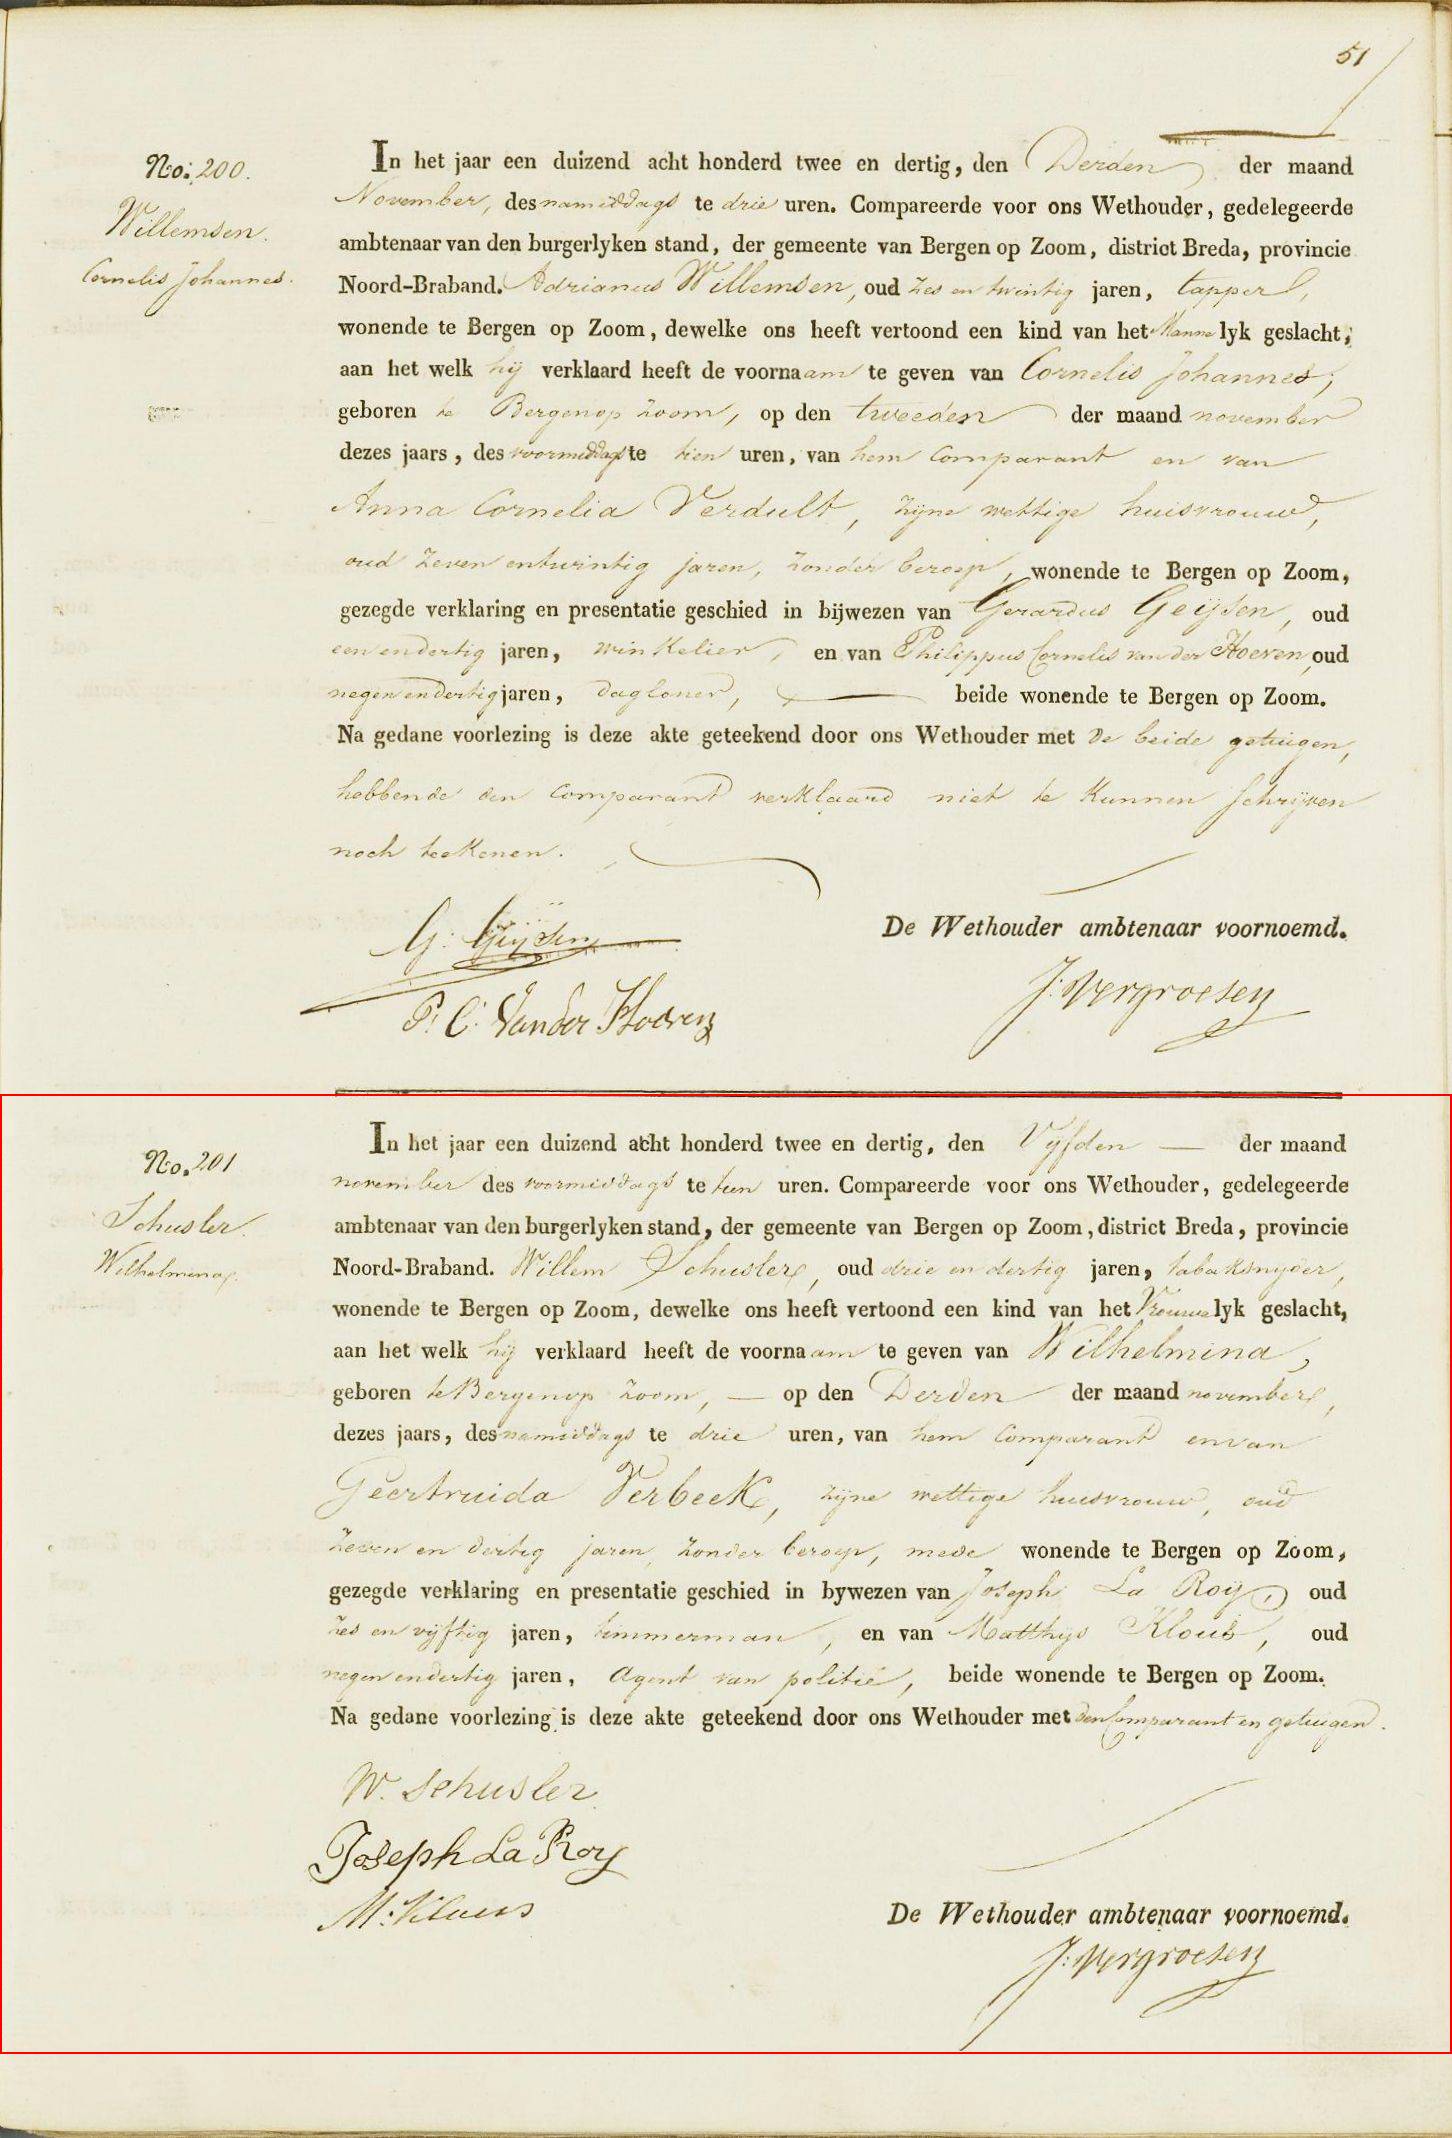 51
No. 200.
Willemsen.
Cornelis Johannes.
In het jaar een duizend acht honderd twee en dertig, den Derden der maand
November, des namiddags te drie uren. Compareerde voor ons Wethouder, gedelegeerde
ambtenaar van den burgerlyken stand, der gemeente van Bergen op Zoom, district Breda, provincie
Noord-Braband. Adrianus Willemsen, oud zes en twintig jaren, tapper,
wonende te Bergen op Zoom, dewelke ons heeft vertoond een kind van het Mannelyk geslacht,
aan het welk hij verklaard heeft de voornaam te geven van Cornelis Johannes,
geboren te Bergen op Zoom, op den tweeden der maand november
dezes jaars, des voormiddags te tien uren, van hem Comparant en van
Anna Cornelia Verdult, zijne wettige huisvrouw,
oud zeven entwintig jaren, zonder beroep, wonende te Bergen op Zoom,
gezegde verklaring en presentatie geschied in bijwezen van Gerardus Geijsen, oud
een en dertig jaren, winkelier, en van Philippus Cornelis van der Hoeven, oud
negen en dertig jaren, dagloner, beide wonende te Bergen op Zoom.
Na gedane voorlezing is deze akte geteekend door ons Wethouder met de beide getuigen,
hebbende den Comparant verklaard niet te kunnen schrijven
noch teekenen.
De Wethouder ambtenaar voornoemd.
G. Geijsen
P. C. Van der Hoeven
J. Vergroesen
No. 201
Schusler.
Wilhelmina.
In het jaar een duizend acht honderd twee en dertig, den Vijfden der maand
november des voormiddags te tien uren. Compareerde voor ons Wethouder, gedelegeerde
ambtenaar van den burgerlyken stand, der gemeente van Bergen op Zoom, district Breda, provincie
Noord-Braband. Willem Schusler, oud drie en dertig jaren, tabaksnyder,
wonende te Bergen op Zoom, dewelke ons heeft vertoond een kind van het Vrouwelyk geslacht,
aan het welk hij verklaard heeft de voornaam te geven van Wilhelmina,
geboren te Bergen op Zoom, op den Derden der maand november,
dezes jaars, des namiddags te drie uren, van hem Comparant en van
Geertruida Verbeek, zijne wettige huisvrouw, oud
zeven en dertig jaren, zonder beroep, mede wonende te Bergen op Zoom,
gezegde verklaring en presentatie geschied in bywezen van Joseph La Roij, oud
zes en vijftig jaren, timmerman, en van Matthys Klous, oud
negen en dertig jaren, Agent van politie, beide wonende te Bergen op Zoom.
Na gedane voorlezing is deze akte geteekend door ons Wethouder met den Comparant en getuigen.
W. Schusler
Joseph La Roy
M. Klous
De Wethouder ambtenaar voornoemd.
J. Vergroesen